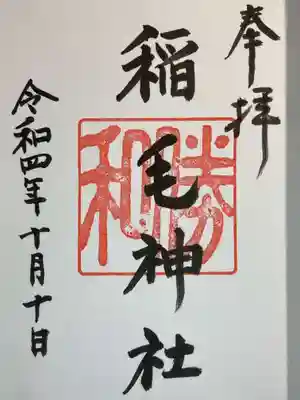 奉拝
稲毛神社
勝和
令和四年十月十日